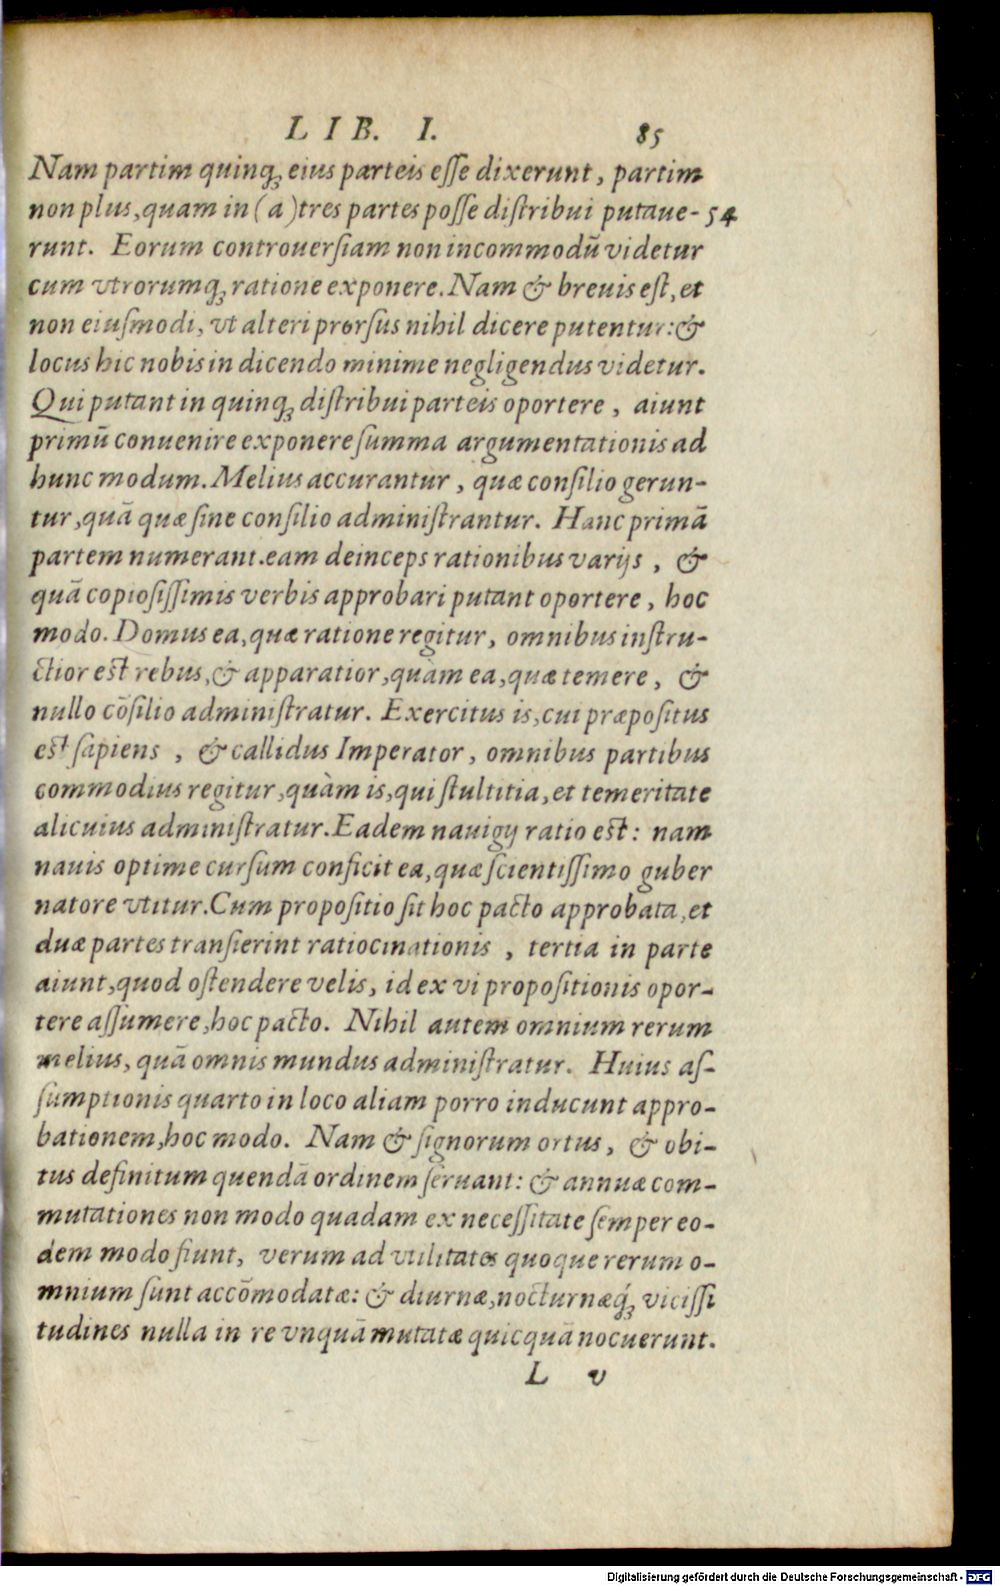 LIB. I. 85
Nam partim quinq́ꝫ eius parteis eſſe dixerunt, partim
non plus, quam in (a) tres partes poſſe diſtribui putaue- 54
runt. Eorum controuerſiam non incommodū videtur
cum vtrorumqꝫ ratione exponere. Nam & breuis eſt, et
non eiuſmodi, vt alteri prorſus nihil dicere putentur: &
locus hic nobis in dicendo minime negligendus videtur.
Qui putant in quinqꝫ diſtribui parteis oportere, aiunt
primū conuenire exponere ſumma argumentationis ad
hunc modum. Melius accurantur, quæ conſilio gerun-
tur, quā quæ ſine conſilio adminiſtrantur. Hanc primā
partem numerant. eam deinceps rationibus varijs, &
quā copioſiſſimis verbis approbari putant oportere, hoc
modo. Domus ea, quæ ratione regitur, omnibus inſtru-
ctior eſt rebus, & apparatior, quàm ea, quæ temere, &
nullo cōſilio adminiſtratur. Exercitus is, cui præpoſitus
eſt ſapiens, & callidus Imperator, omnibus partibus
commodius regitur, quàm is, qui ſtultitia, et temeritate
alicuius adminiſtratur. Eadem nauigij ratio eſt: nam
nauis optime curſum conficit ea, quæ ſcientiſſimo guber
natore vtitur. Cum propoſitio ſit hoc pacto approbata, et
duæ partes tranſierint ratiocinationis, tertia in parte
aiunt, quod oſtendere velis, id ex vi propoſitionis opor-
tere aſſumere, hoc pacto. Nihil autem omnium rerum
melius, quā omnis mundus adminiſtratur. Huius aſ-
ſumptionis quarto in loco aliam porro inducunt appro-
bationem, hoc modo. Nam & ſignorum ortus, & obi-
tus definitum quendā ordinem ſeruant: & annuæ com-
mutationes non modo quadam ex neceſſitate ſemper eo-
dem modo fiunt, verum ad vtilitates quoque rerum o-
mnium ſunt accōmodatæ: & diurnæ, nocturnæq́ꝫ viciſſi
tudines nulla in re vnquā mutatæ quicquā nocuerunt.
L v
Digitalisierung gefördert durch die Deutsche Forschungsgemeinschaft - DFG